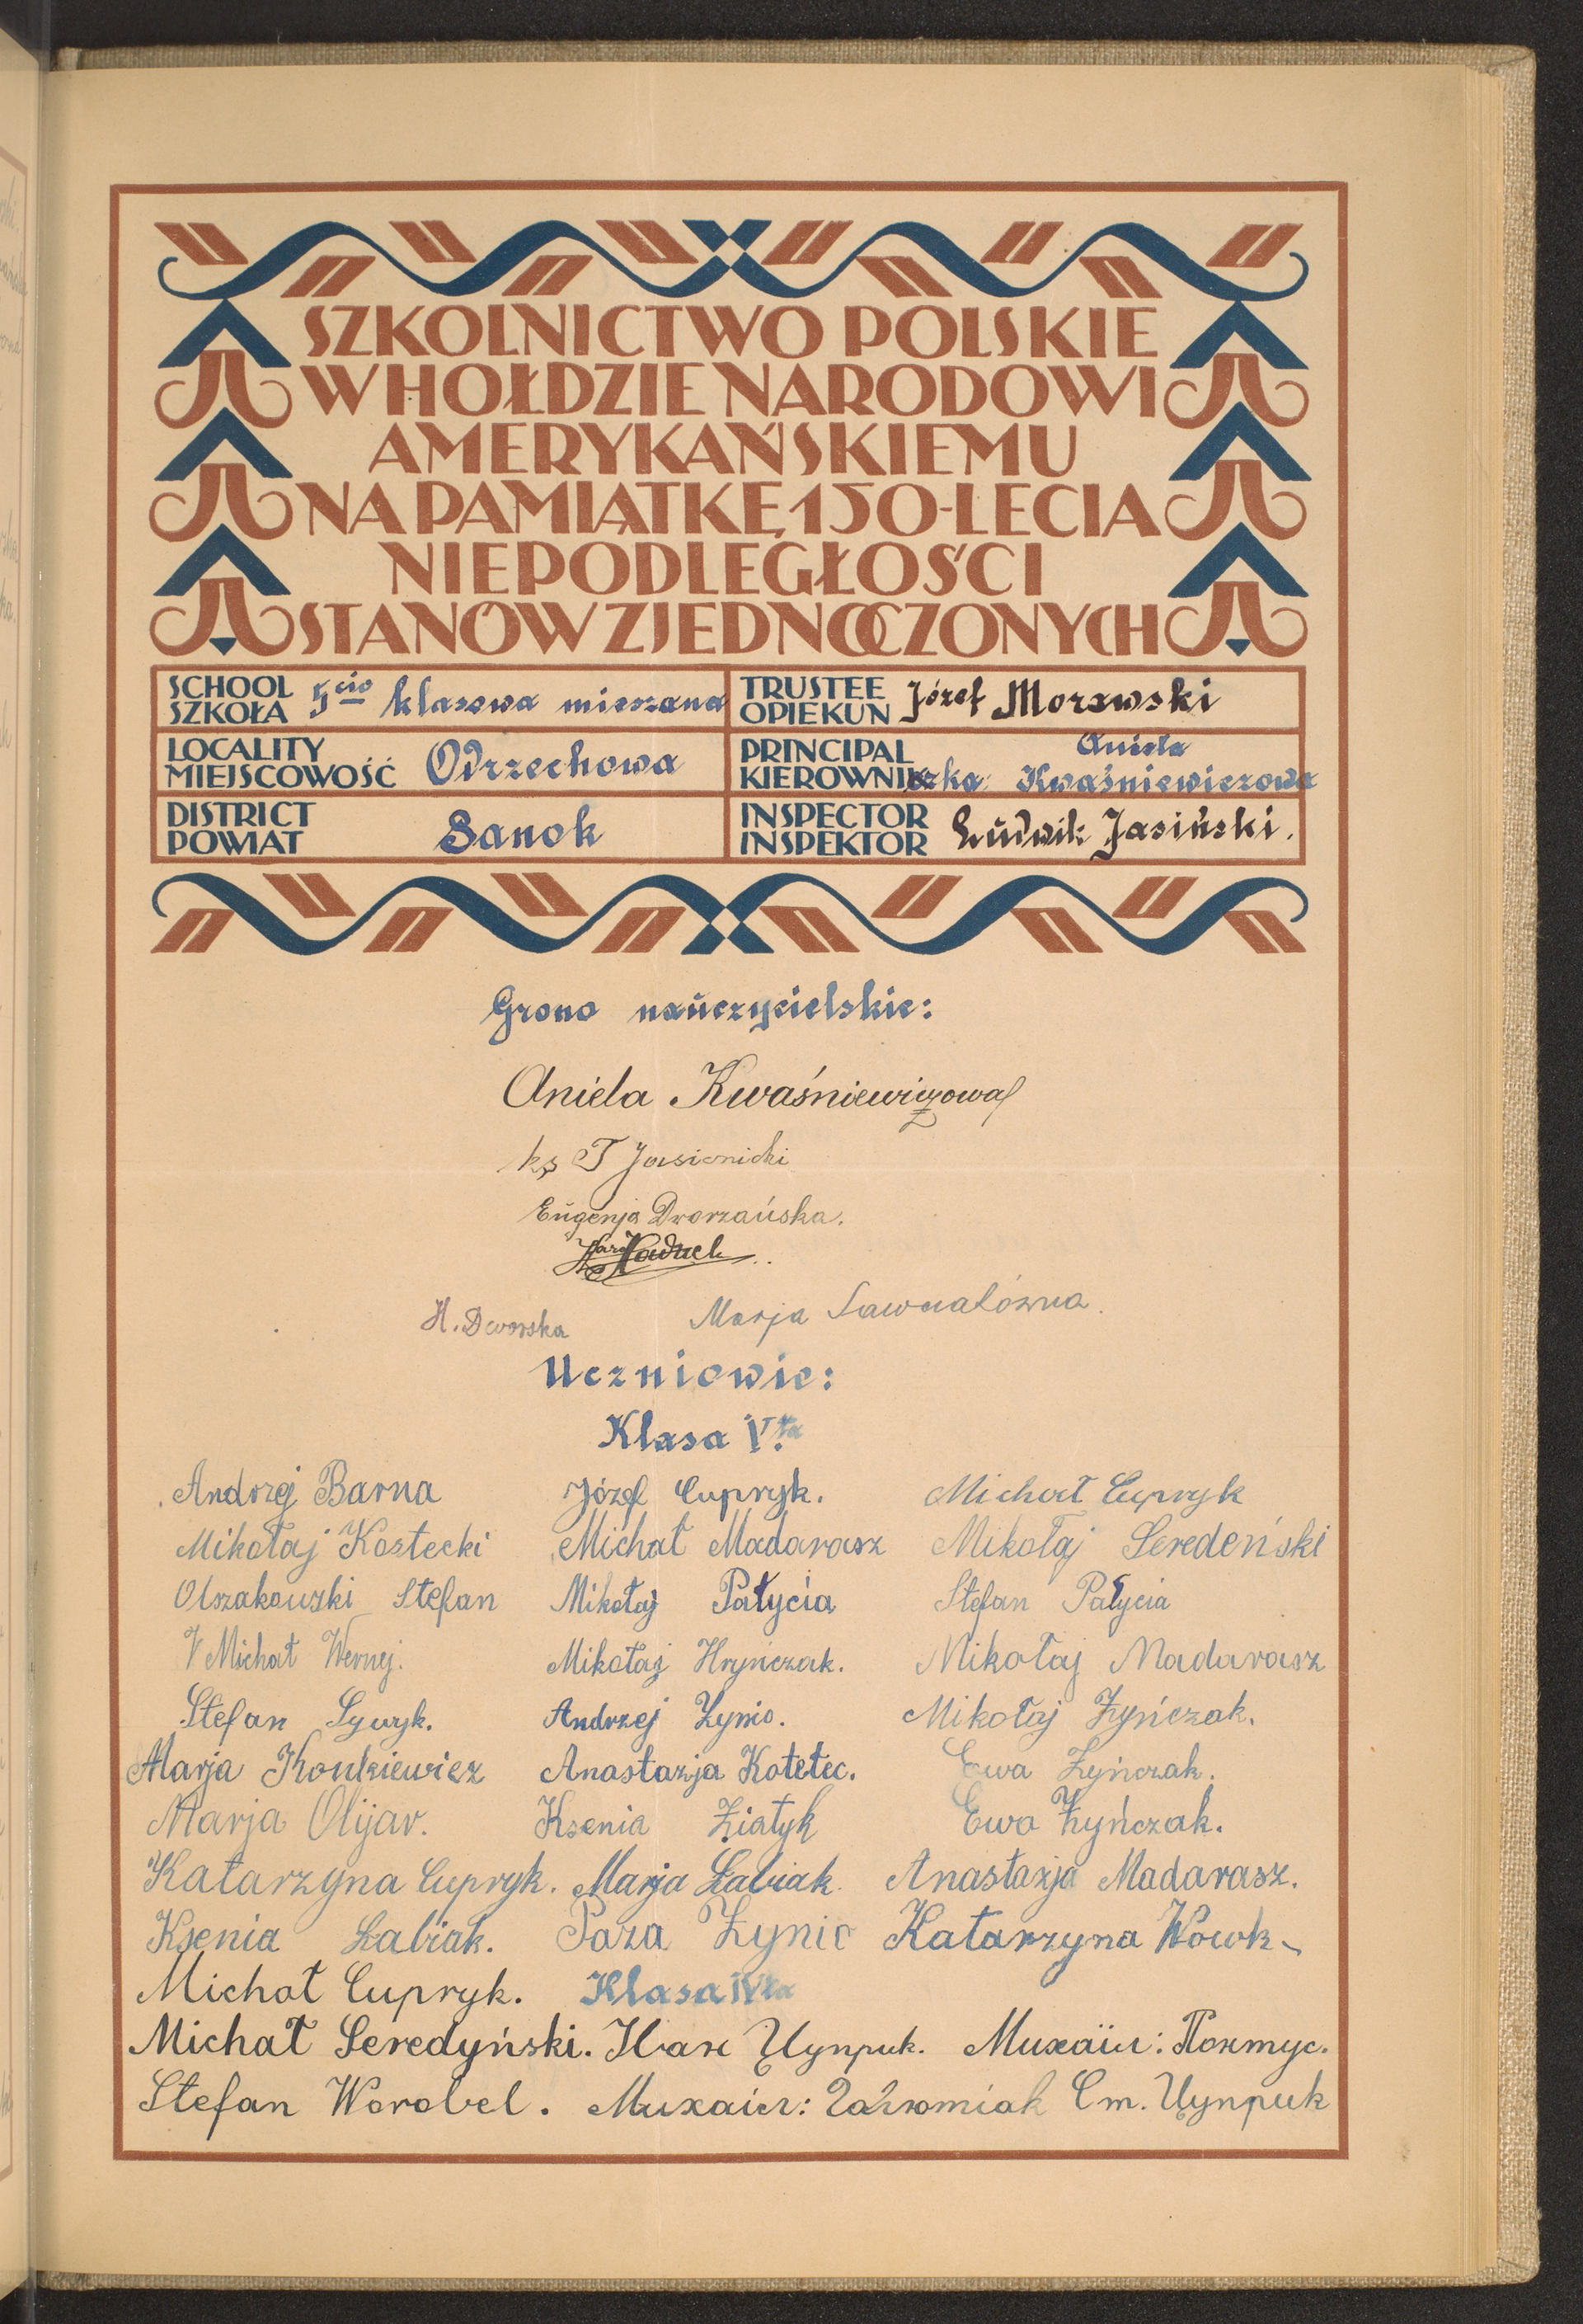 SZKOLNICTWO POLSKIE
W HOŁDZIE NARODOWI
AMERYKAŃSKIEMU
NA PAMIĄTKĘ 150-LECIA
NIEPODLEGŁOŚCI
STANÓW ZJEDNOCZONYCH
SCHOOL
SZKOŁA 5cio klasowa mieszana
TRUSTEE
OPIEKUN Józef Morawski
LOCALITY
MIEJSCOWOŚĆ Odrzechowa
PRINCIPAL Aniela
KIEROWNIczka Kwaśniewiczowa
DISTRICT
POWIAT Sanok
INSPECTOR
INSPEKTOR Ludwik Jasiński.
Grono nauczycielskie:
Aniela Kwaśniewiczowa
ks T Jasienicki
Eugenja Dworzańska.
H. Dworska Marja
Uczniowie:
Klasa V.ta
Andrzej Barna Józef Cupryk. Michał Cupryk
Mikołaj Kostecki Michał Madarasz Mikołaj Seredeński
Olszakowski Stefan Mikołaj Pałycia Stefan Pałycia
Michał Wernej. Mikołaj Hryńczak. Mikołaj Madarasz
Stefan Sywyk. Andrzej Żynio. Mikołaj Żyńczak.
Marja Konkiewicz Anastazja Kotełec. Ewa Żyńczak.
Marja Olijar. Ksenia Ziatyk Ewa Żyńczak.
Katarzyna Cupryk. Marja Łabiak Anastazja Madarasz.
Ksenia Łabiak. Paza Żynio Katarzyna Wowk
Michał Cupryk. Klasa IVta
Michał Seredyński. Іван Цуприк. Михаїл: Поктус.
Stefan Worobel. Михаил: Ст. Цуприк